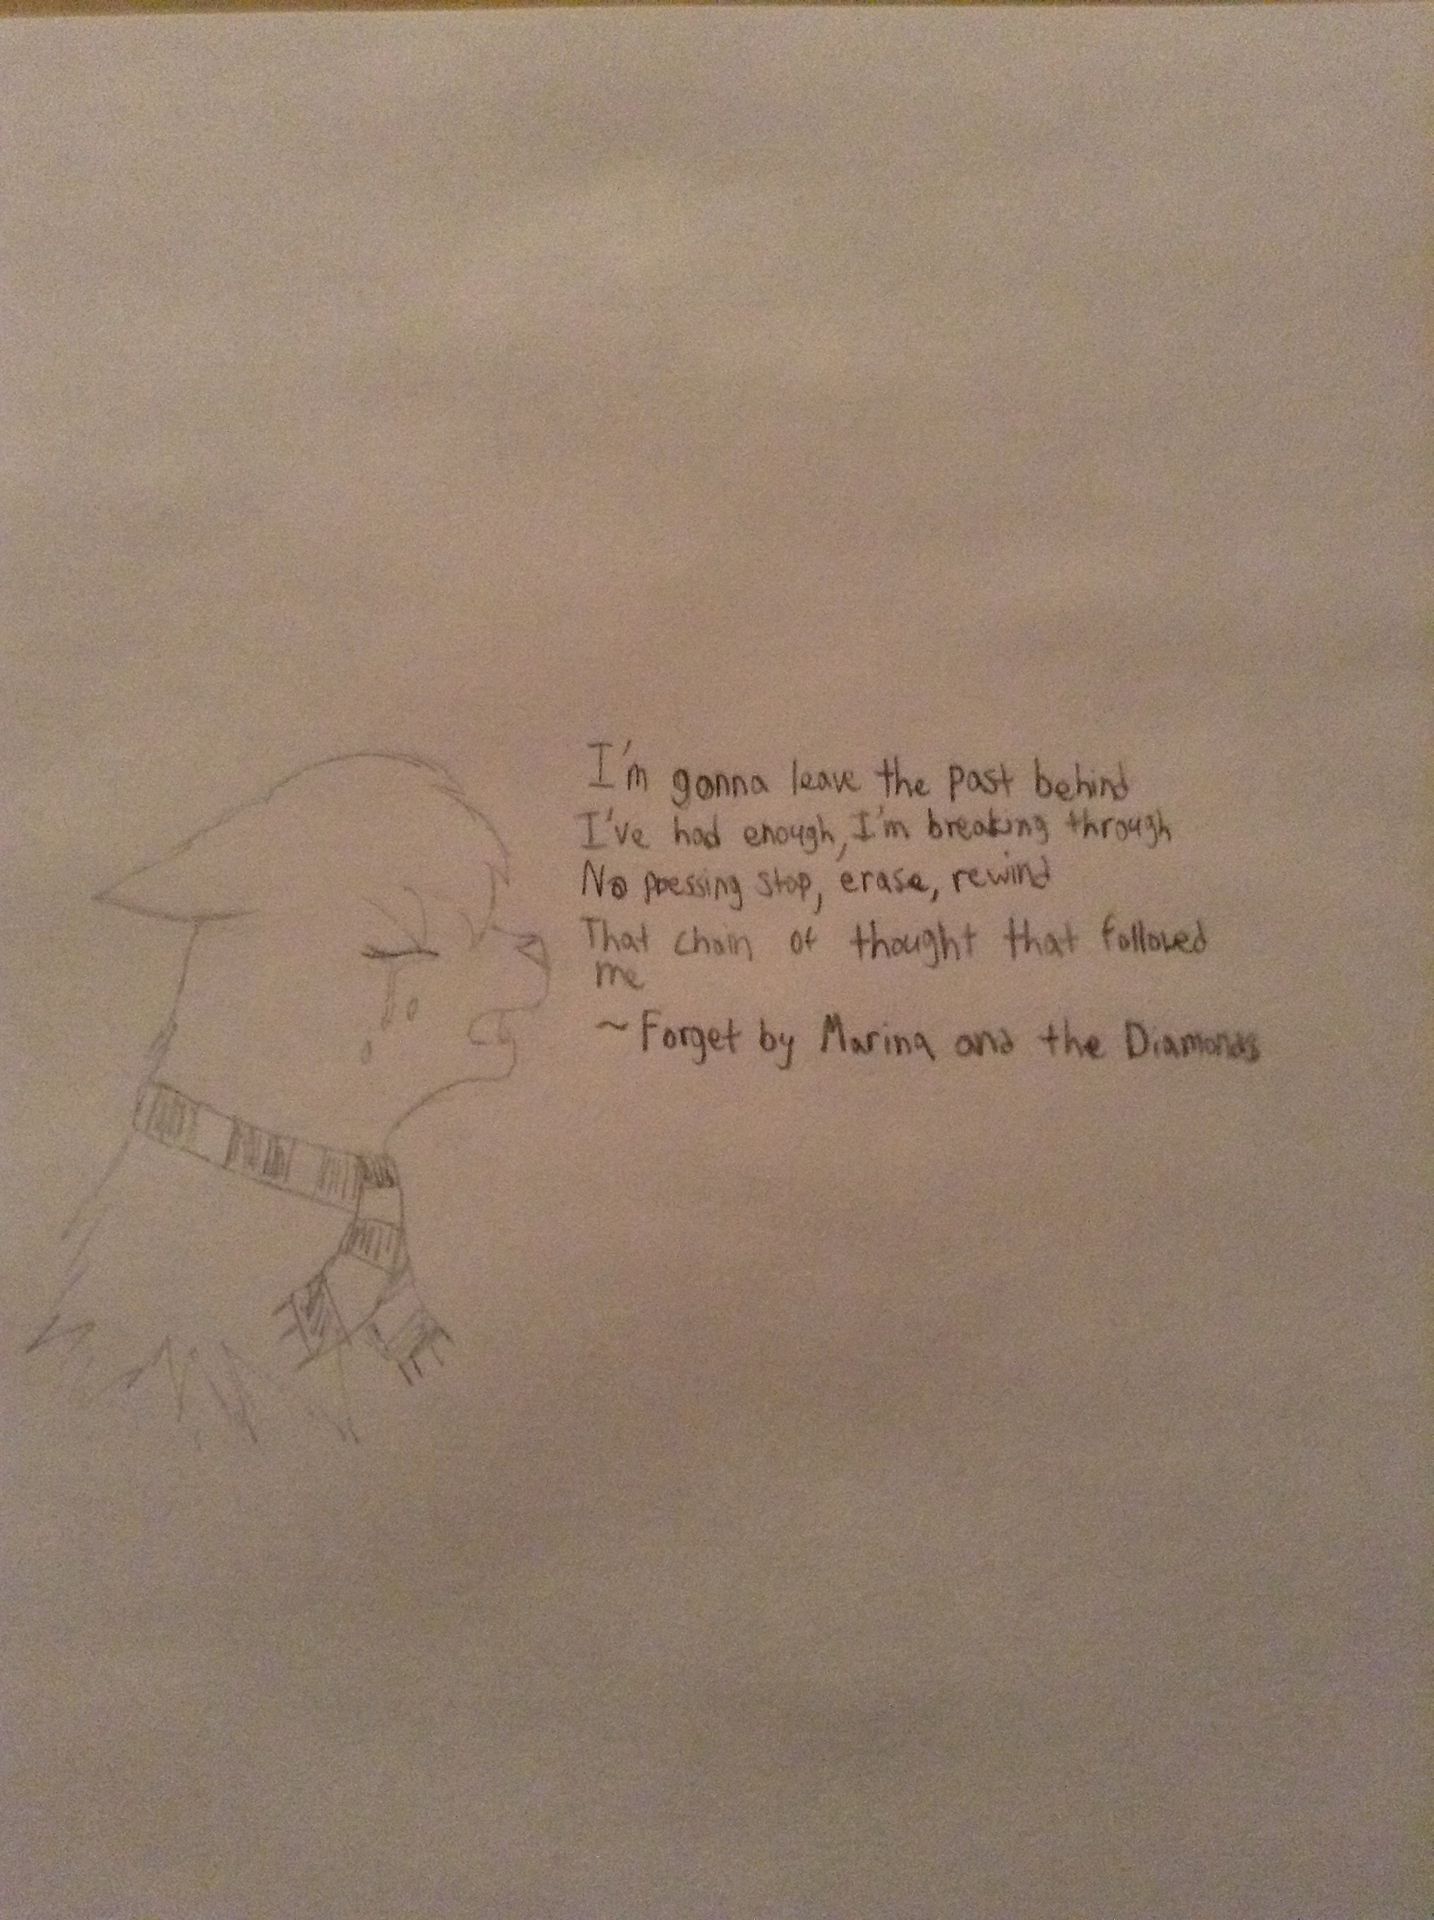 I'm gonna leave the past behind
I've had enough, I'm breaking through
No pressing stop, erase, rewind
That chain of thought that followed
me
~Forget by Marina and the Diamonds